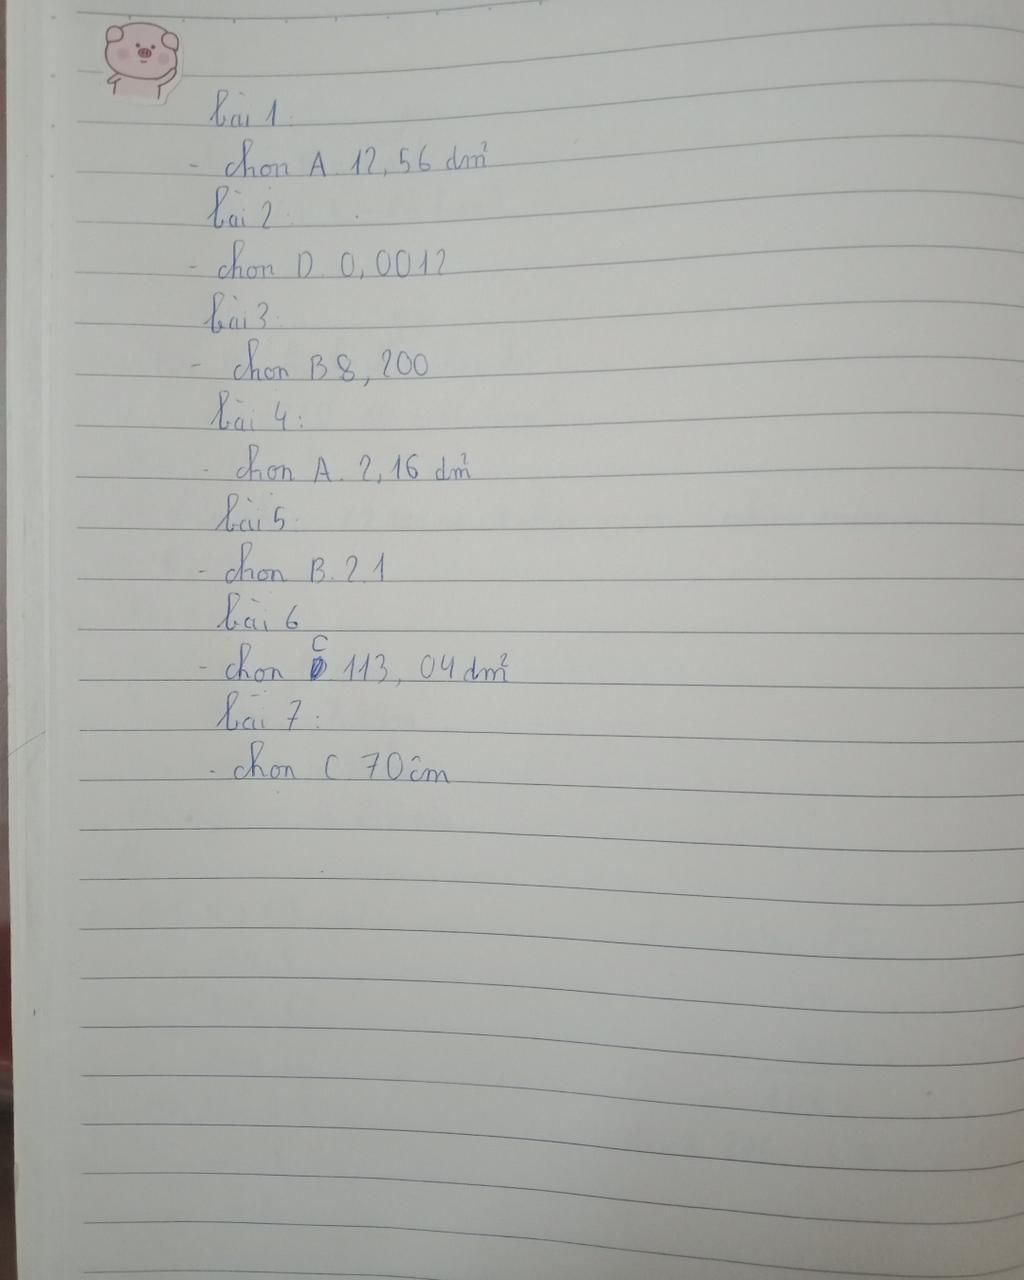 bài 1:
- chon A. 12,56 dm²
bài 2:
- chon D. 0,0012
bài 3:
- chon B 8,200
bài 4:
- chon A. 2,16 dm²
bài 5:
- chon B. 2.1
bài 6
- chon C 113,04 dm²
bài 7:
- chon C 70 cm